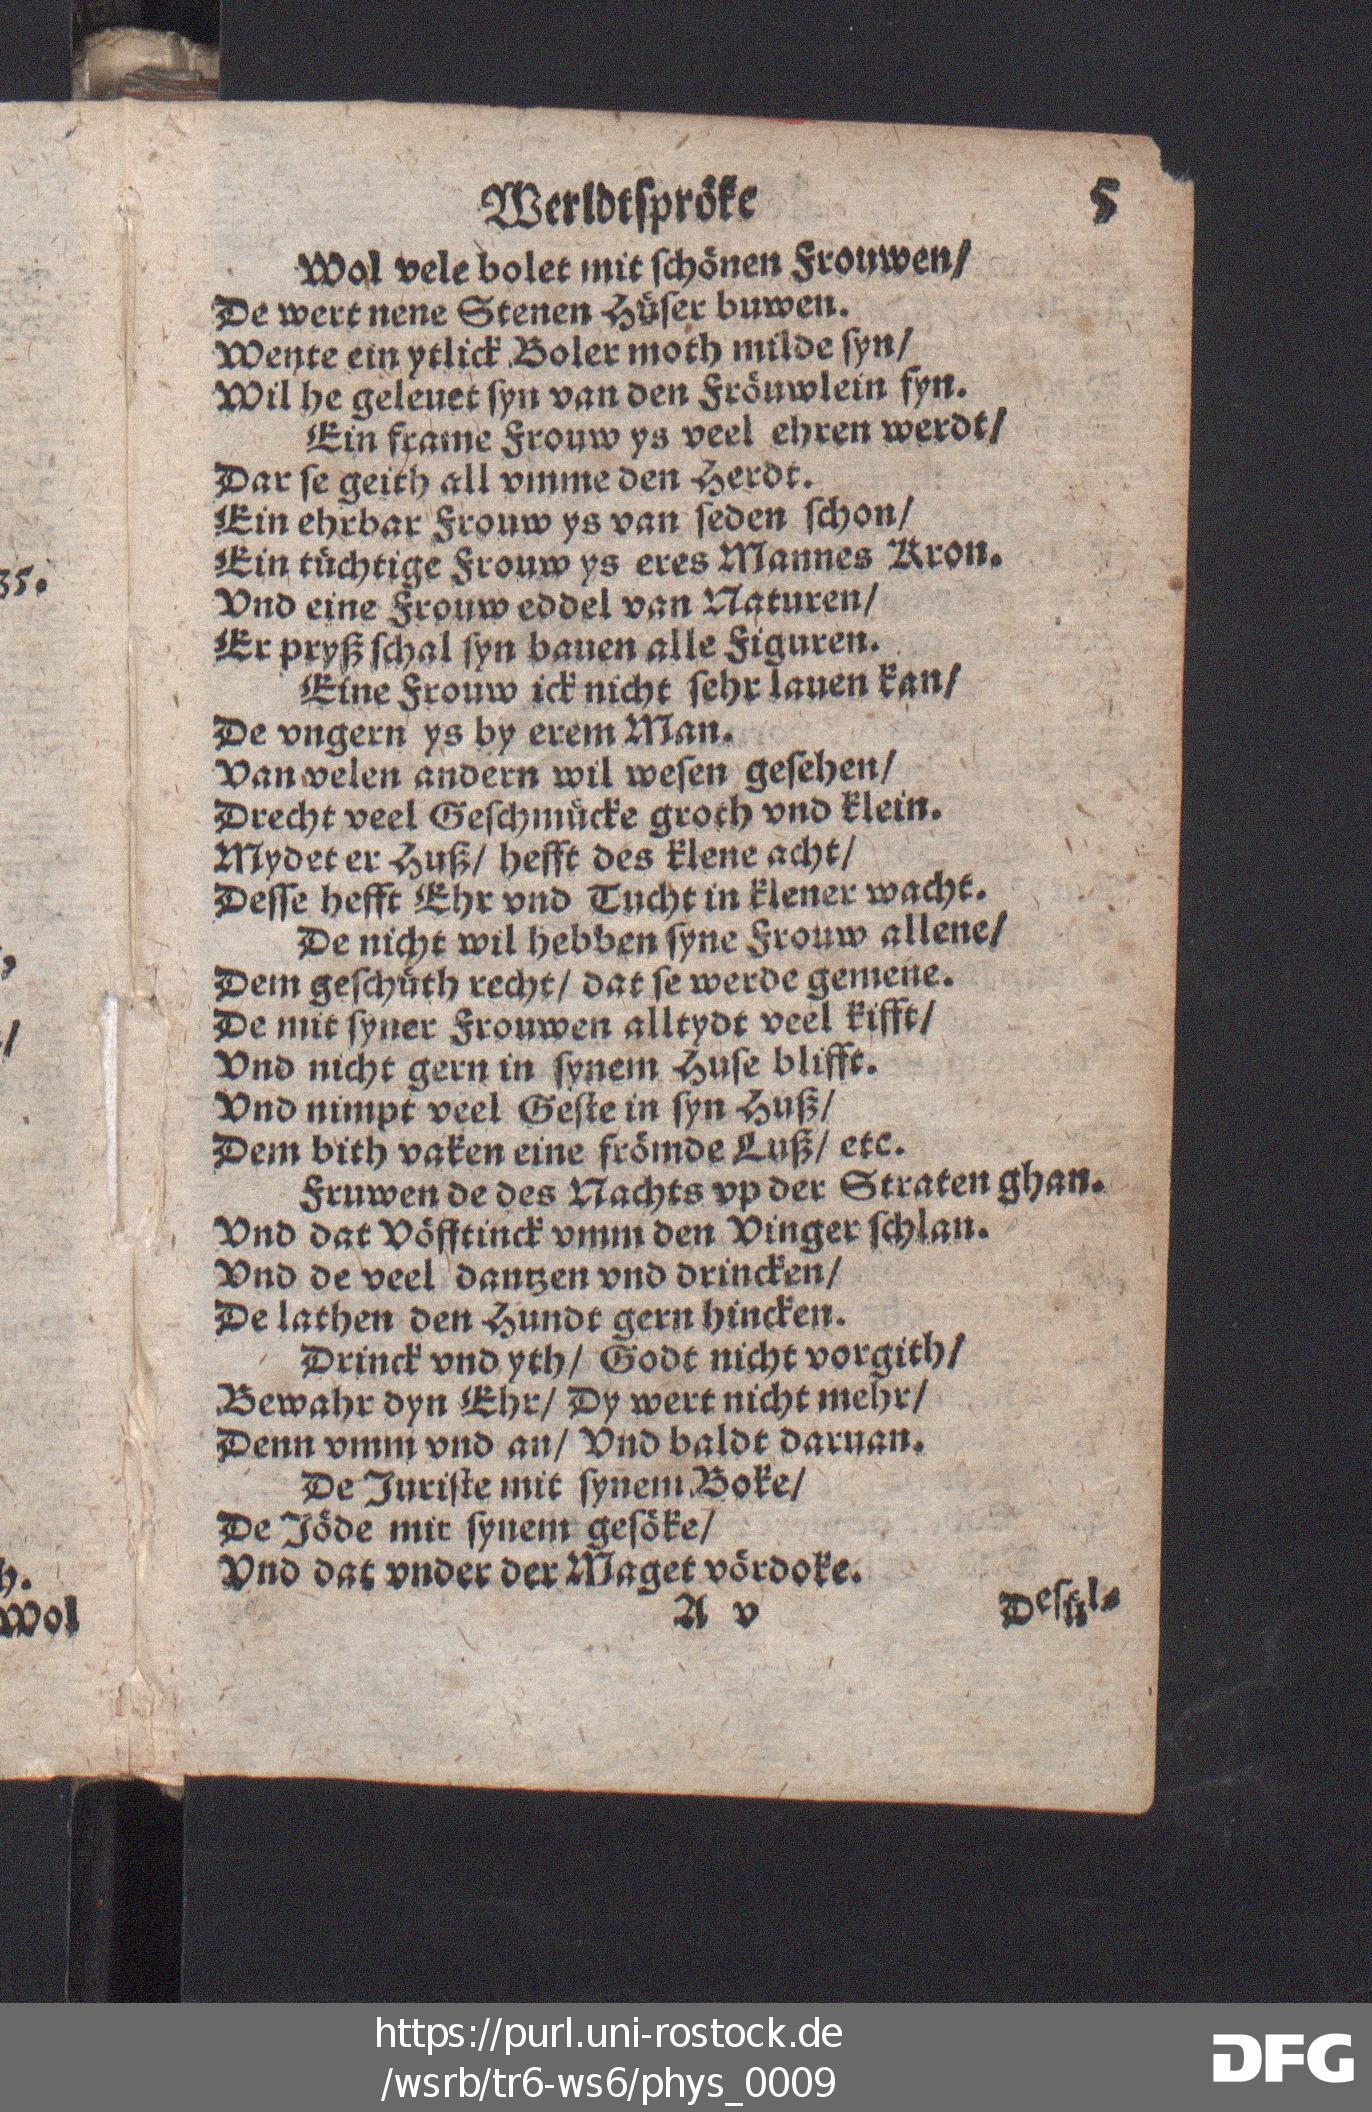 Werldtspröke 5
Wol vele bolet mit schönen Frouwen/
De wert nene Stenen Hüser buwen.
Wente ein ytlick Boler moth milde syn/
Wil he geleuet syn van den Fröuwlein fyn.
Ein frame Frouw ys veel ehren werdt/
Dar se geith all vmme den Herdt.
Ein ehrbar Frouw ys van seden schon/
Ein tüchtige Frouw ys eres Mannes Kron.
Vnd eine Frouw eddel van Naturen/
Er pryß schal syn bauen alle Figuren.
Eine Frouw ick nicht sehr lauen kan/
De vngern ys by erem Man.
Van velen andern wil wesen gesehen/
Drecht veel Geschmücke groth vnd klein.
Mydet er Huß/ hefft des klene acht/
Desse hefft Ehr vnd Tucht in klener wacht.
De nicht wil hebben syne Frouw allene/
Dem geschüth recht/ dat se werde gemene.
De mit syner Frouwen alltydt veel kifft/
Vnd nicht gern in synem Huse blifft.
Vnd nimpt veel Geste in syn Huß/
Dem bith vaken eine frömde Luß/ etc.
Fruwen de des Nachts vp der Straten ghan.
Vnd dat Vöfftinck vmm den Vinger schlan.
Vnd de veel dantzen vnd drincken/
De lathen den Hundt gern hincken.
Drinck vnd yth/ Godt nicht vorgith/
Bewahr dyn Ehr/ Dy wert nicht mehr/
Denn vmm vnd an/ Vnd baldt daruan.
De Juriste mit synem Boke/
De Jöde mit synem gesöke/
Vnd dat vnder der Maget vördoke.
A v Desül-
35.
h.
Wol
https://purl.uni-rostock.de
/wsrb/tr6-ws6/phys_0009
DFG